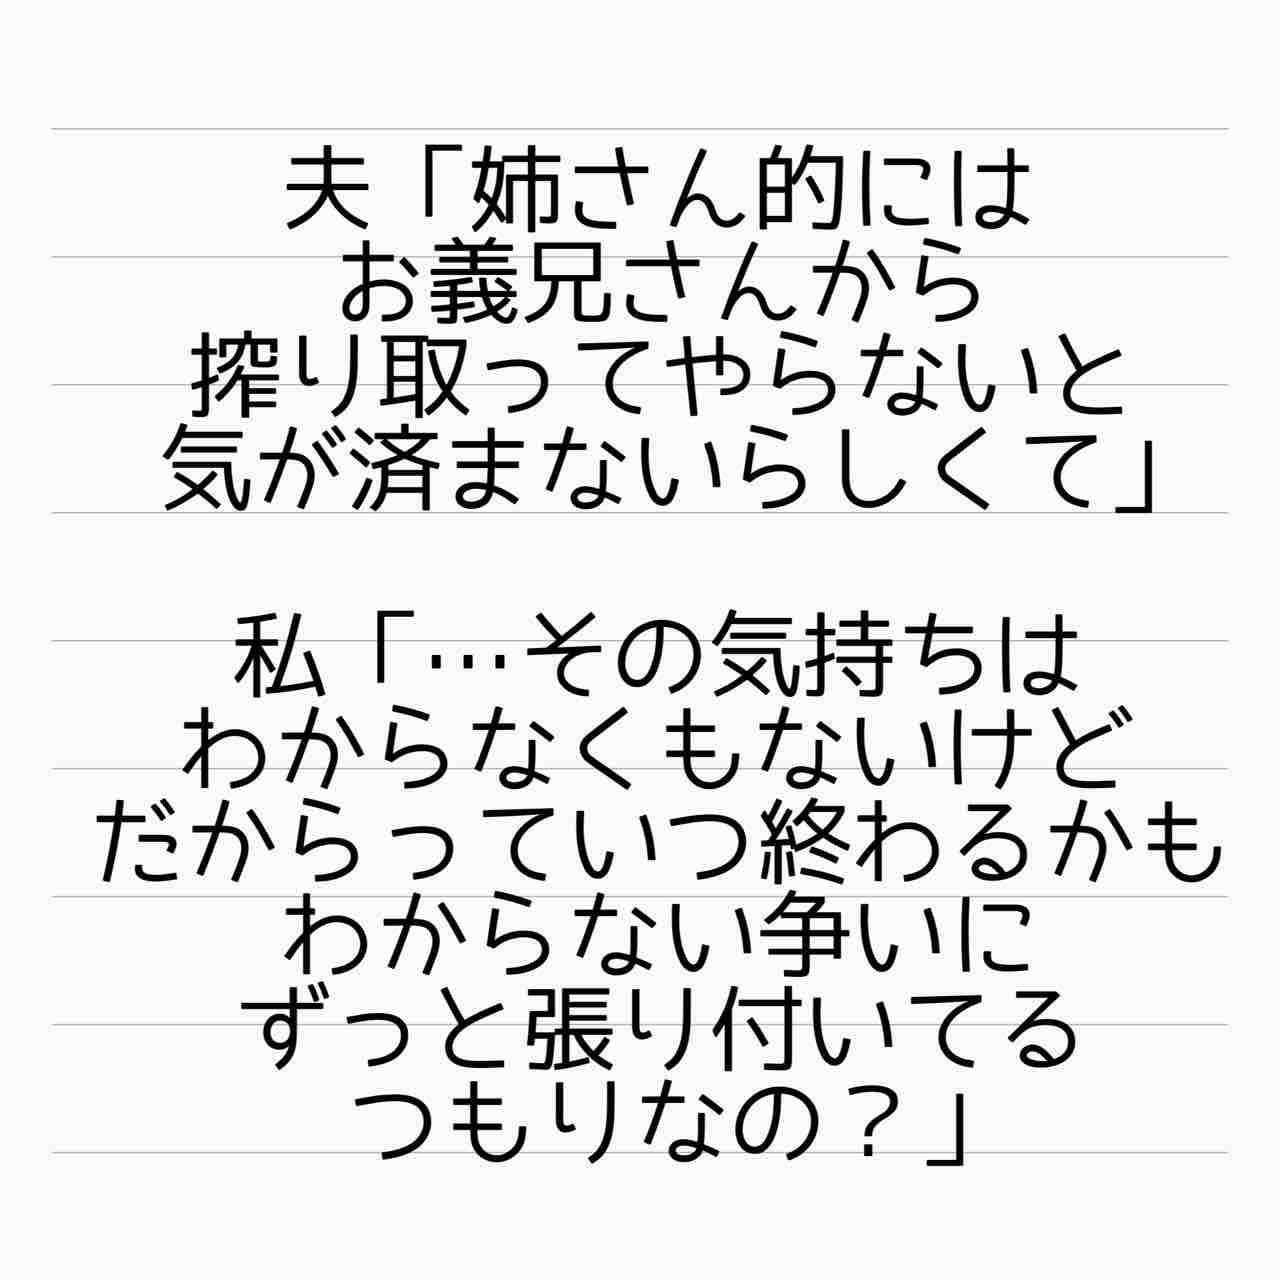 夫「姉さん的には
お義兄さんから
搾り取ってやらないと
気が済まないらしくて」
私「…その気持ちは
わからなくもないけど
だからっていつ終わるかも
わからない争いに
ずっと張り付いてる
つもりなの？」